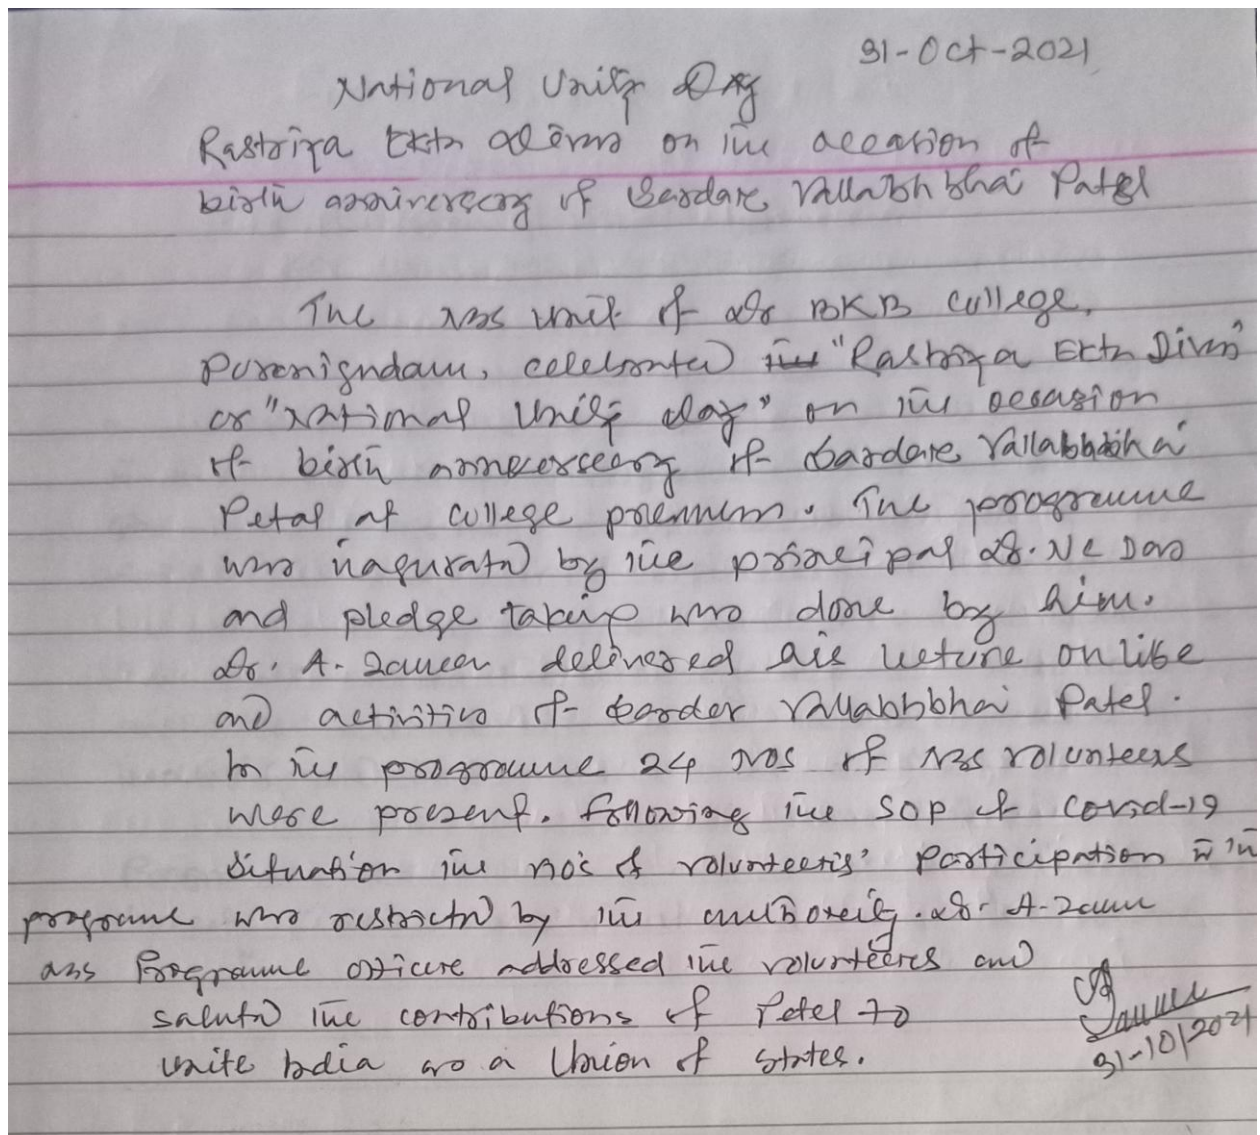 31-Oct-2021
National Unity Day
Rastriya Ekta Divas on the occasion of
birth anniversary of Sardare Vallabhbhai Patel
The NSS unit of Dr BKB College,
Puranigudam, celebrated the "Rastriya Ekta Divas"
or "National Unity day" on the occasion
of birth annecerseery of Sardare Vallabhbhai
Petal at college premises. The programme
was inagurated by the principal Dr. N C Das
and pledge taking was done by him.
Dr. A. Zaman delivered his lecture on life
and activities of Sarder Vallabhbhai Patel.
In the programme 24 nos of NSS volunteers
were present. Following the SOP of Covid-19
Situation the no's of volunteers' Participation in the
programe was restricted by the authority. Dr. A. Zaman
NSS Programme officere addressed the volunteeres and
saluted the contributions of Patel to
unite India as a Union of States.
31-10/2021